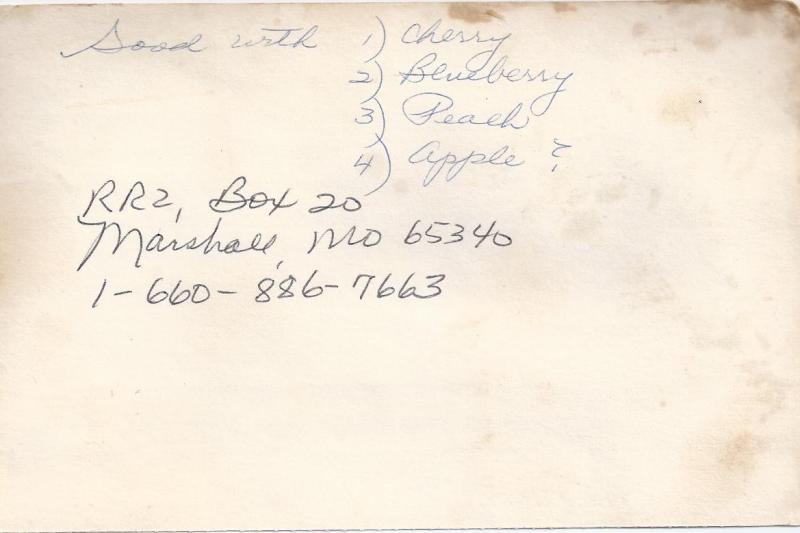 Good with 1) Cherry
2) Blueberry
3) Peach
4) Apple ?
RR2, Box 20
Marshall, MO 65340
1-660-886-7663